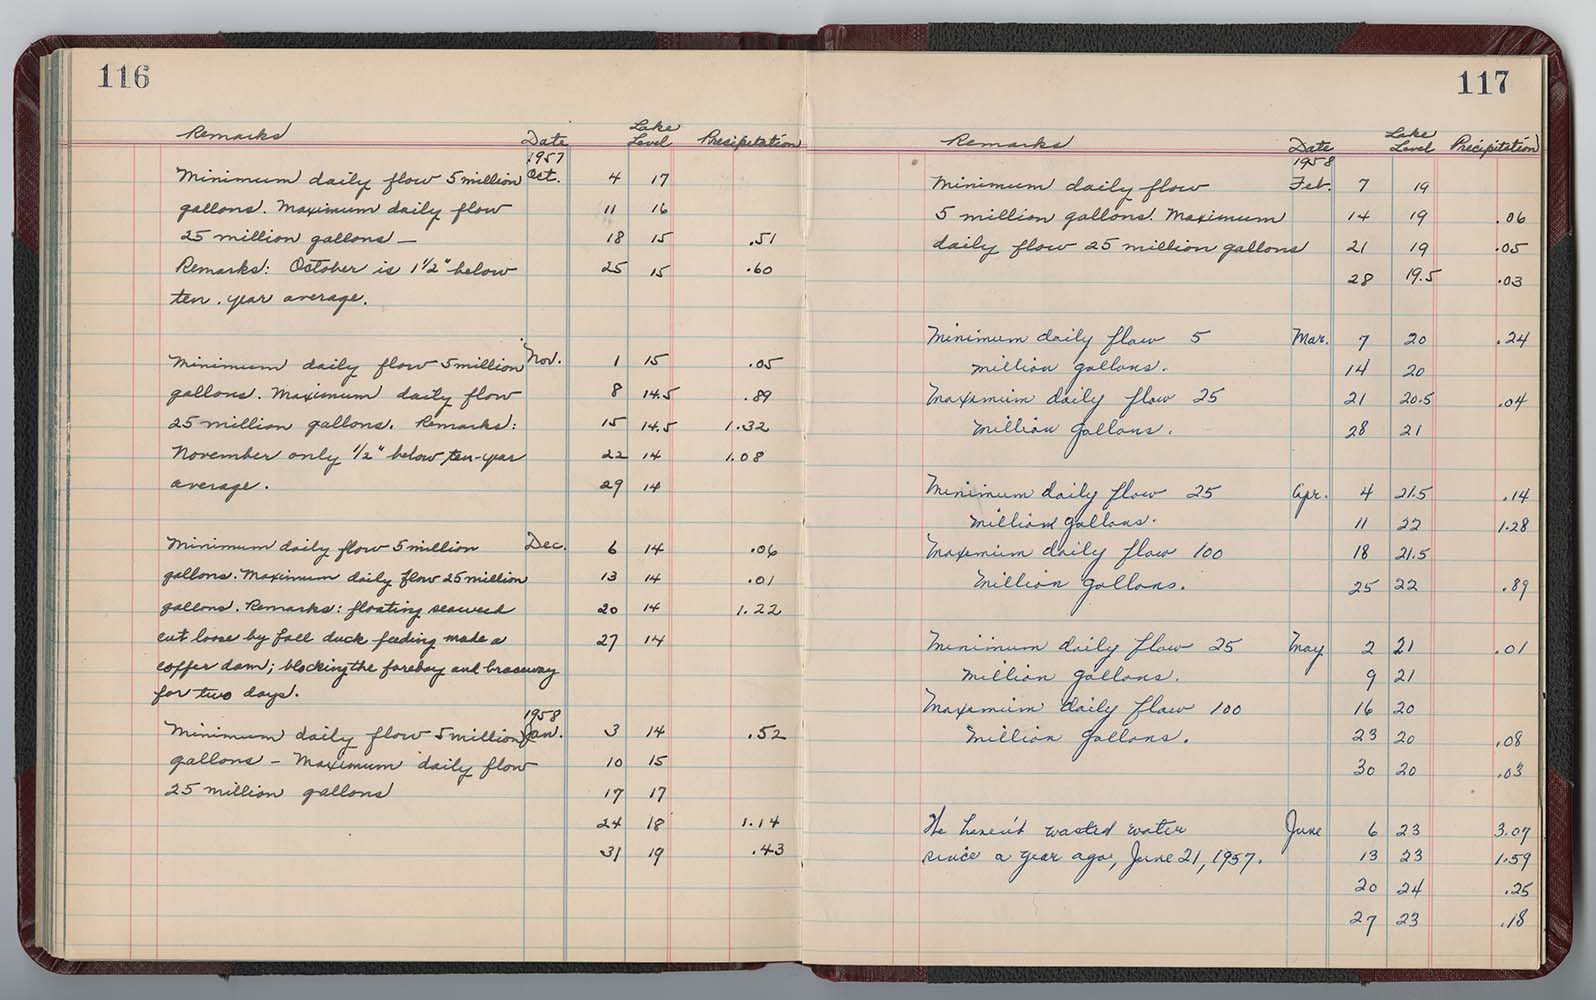 116
Remarks Date Lake Level Precipitation
1957
Minimum daily flow 5 million Oct. 4 17
gallons. Maximum daily flow 11 16
25 million gallons — 18 15 .51
Remarks: October is 1 1/2" below 25 15 .60
ten-year average.
Minimum daily flow 5 million Nov. 1 15 .05
gallons. Maximum daily flow 8 14.5 .89
25 million gallons. Remarks: 15 14.5 1.32
November only 1/2" below ten-year 22 14 1.08
average. 29 14
Minimum daily flow 5 million Dec. 6 14 .06
gallons. Maximum daily flow 25 million 13 14 .01
gallons. Remarks: floating seaweed 20 14 1.22
cut loose by fall duck feeding made a 27 14
coffer dam; blocking the forebay and
for two days.
1958
Minimum daily flow 5 million Jan. 3 14 .52
gallons - Maximum daily flow 10 15
25 million gallons 17 17
24 18 1.14
31 19 .43
117
Remarks Date Lake Level Precipitation
1958
Minimum daily flow Feb. 7 19
5 million gallons. Maximum 14 19 .06
daily flow 25 million gallons 21 19 .05
28 19.5 .03
Minimum daily flow 5 Mar. 7 20 .24
million gallons. 14 20
Maximum daily flow 25 21 20.5 .04
million gallons. 28 21
Minimum daily flow 25 Apr. 4 21.5 .14
million gallons. 11 22 1.28
Maximum daily flow 100 18 21.5
million gallons. 25 22 .89
Minimum daily flow 25 May 2 21 .01
million gallons. 9 21
Maximum daily flow 100 16 20
million gallons. 23 20 .08
30 20 .03
We haven't wasted water June 6 23 3.07
since a year ago, June 21, 1957. 13 23 1.59
20 24 .25
27 23 .18